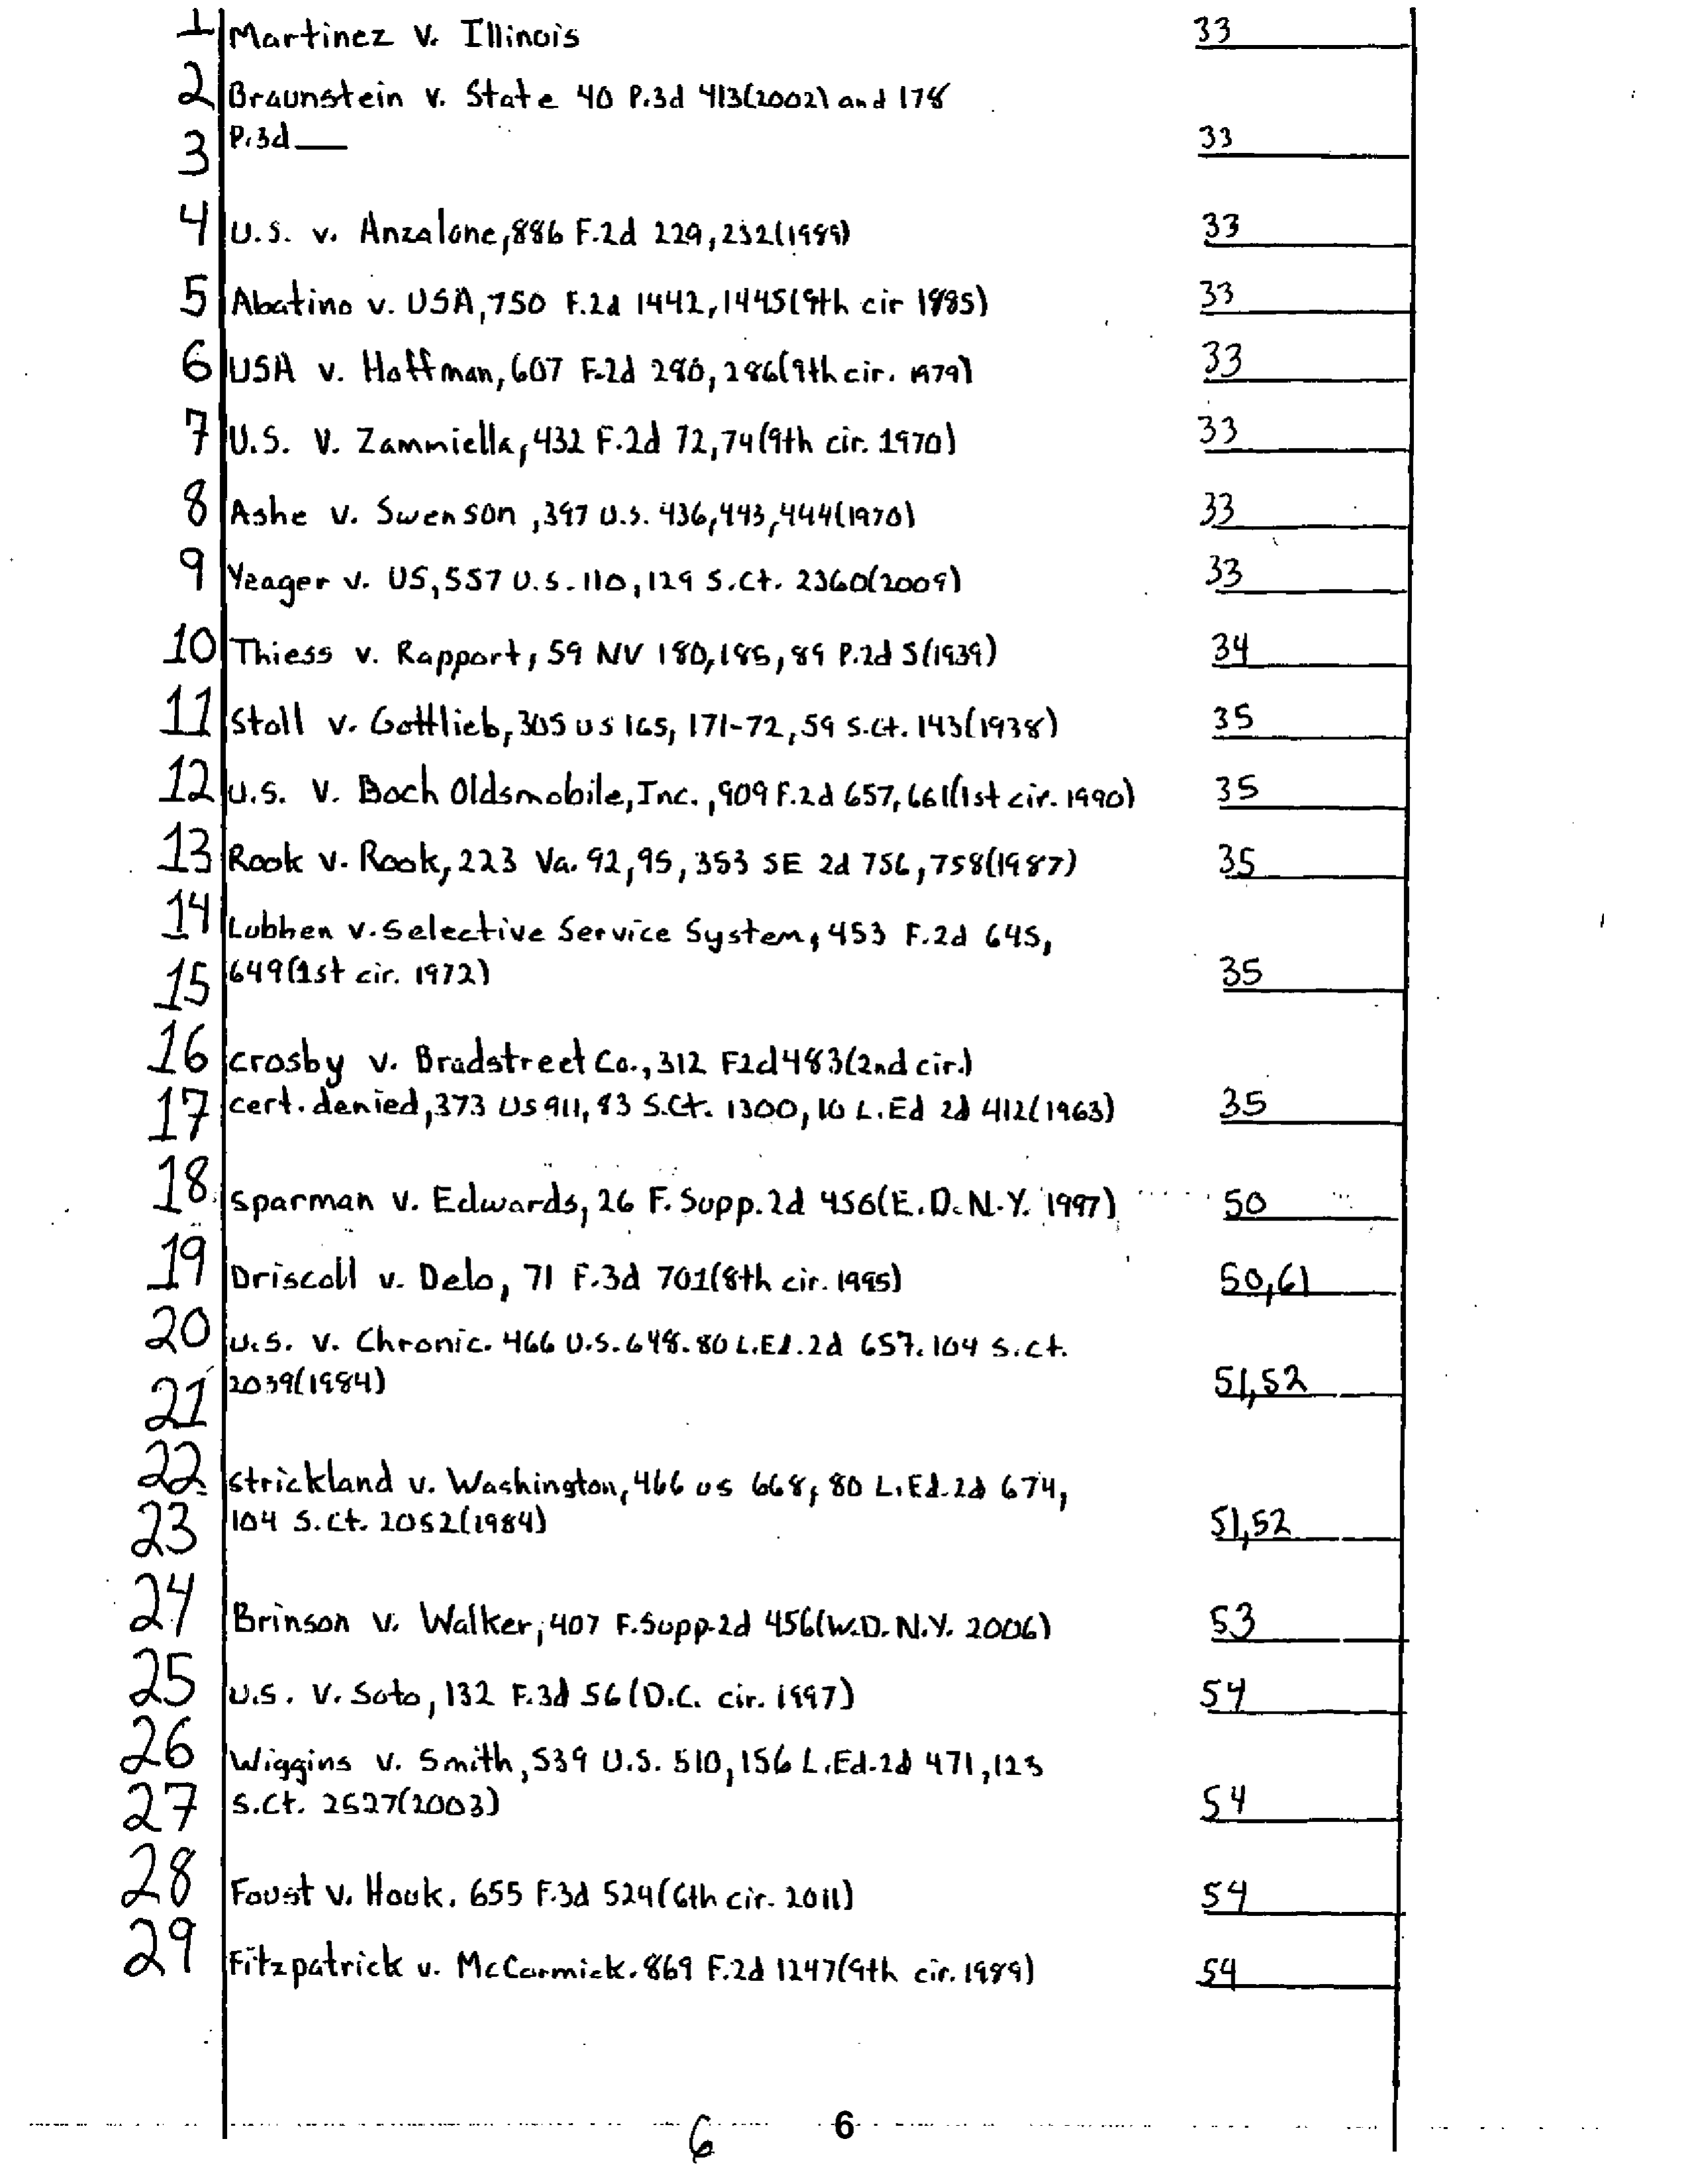 1 Martinez v. Illinois 33
2 Braunstein v. State 40 P.3d 413(2002) and 178
3 P.3d___ 33
4 U.S. v. Anzalone, 886 F.2d 229, 232(1989) 33
5 Abatino v. USA, 750 F.2d 1442, 1445(9th cir 1985) 33
6 USA v. Hoffman, 607 F.2d 280, 286(9th cir. 1979) 33
7 U.S. v. Zammiella, 432 F.2d 72, 74(9th cir. 1970) 33
8 Ashe v. Swenson, 397 U.S. 436, 443, 444(1970) 33
9 Yeager v. US, 557 U.S. 110, 129 S.Ct. 2360(2009) 33
10 Thiess v. Rapport, 59 NV 180, 185, 89 P.2d 5(1939) 34
11 Stoll v. Gottlieb, 305 US 165, 171-72, 59 S.Ct. 143(1938) 35
12 U.S. v. Boch Oldsmobile, Inc., 909 F.2d 657, 661(1st cir. 1990) 35
13 Rook v. Rook, 223 Va. 92, 95, 353 SE 2d 756, 758(1987) 35
14 Lubben v. Selective Service System, 453 F.2d 645,
15 649(1st cir. 1972) 35
16 Crosby v. Bradstreet Co., 312 F2d 483(2nd cir.)
17 cert. denied, 373 US 911, 83 S.Ct. 1300, 10 L.Ed 2d 412(1963) 35
18 Sparman v. Edwards, 26 F. Supp. 2d 456(E.D.N.Y. 1997) 50
19 Driscoll v. Delo, 71 F.3d 701(8th cir. 1995) 50,61
20 U.S. v. Chronic. 466 U.S. 648. 80 L.Ed.2d 657. 104 S.Ct.
21 2039(1984) 51,52
22 Strickland v. Washington, 466 US 668, 80 L.Ed.2d 674,
23 104 S.Ct. 2052(1984) 51,52
24 Brinson v. Walker, 407 F.Supp.2d 456(W.D.N.Y. 2006) 53
25 U.S. v. Soto, 132 F.3d 56(D.C. cir. 1997) 54
26 Wiggins v. Smith, 539 U.S. 510, 156 L.Ed.2d 471, 123
27 S.Ct. 2527(2003) 54
28 Foust v. Houk. 655 F.3d 524(6th cir. 2011) 54
29 Fitzpatrick v. McCormick. 869 F.2d 1247(9th cir. 1989) 54
6 6